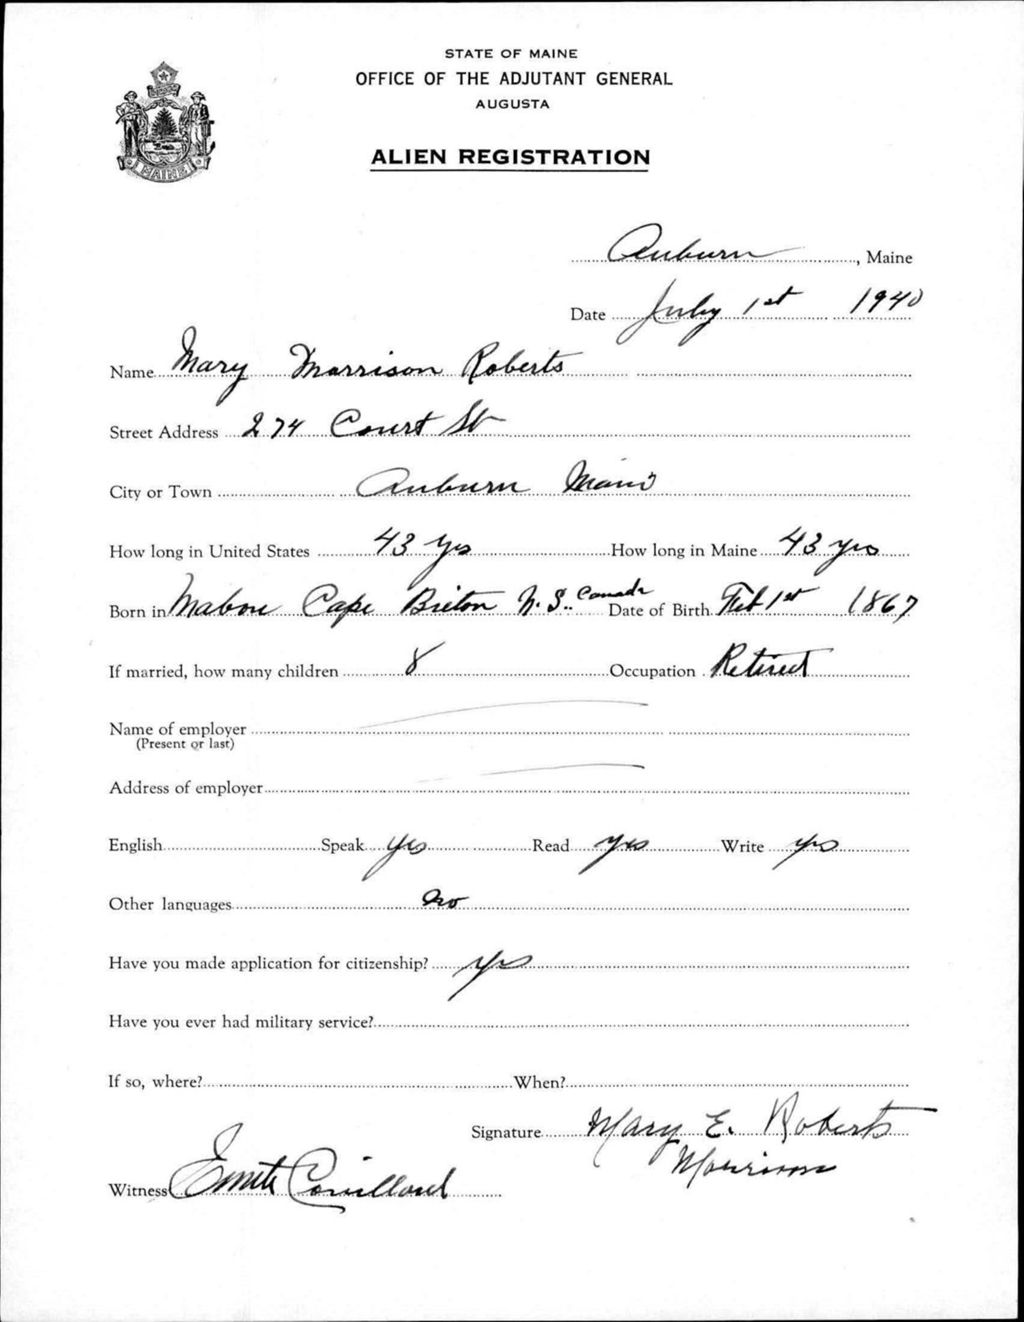 STATE OF MAINE
OFFICE OF THE ADJUTANT GENERAL
AUGUSTA
ALIEN REGISTRATION
MAINE
Auburn, Maine
Date July 1st 1940
Name Mary Morrison Roberts
Street Address 274 Court St
City or Town Auburn Maine
How long in United States 43 yrs How long in Maine 43 yrs
Born in Mabou Cape Breton N.S. Canada Date of Birth Feb 1st 1867
If married, how many children 8 Occupation Retired
Name of employer
(Present or last)
Address of employer
English Speak yes Read yes Write yes
Other languages no
Have you made application for citizenship? yes
Have you ever had military service?
If so, where? When?
Signature Mary E. Roberts
Morrison
Witness